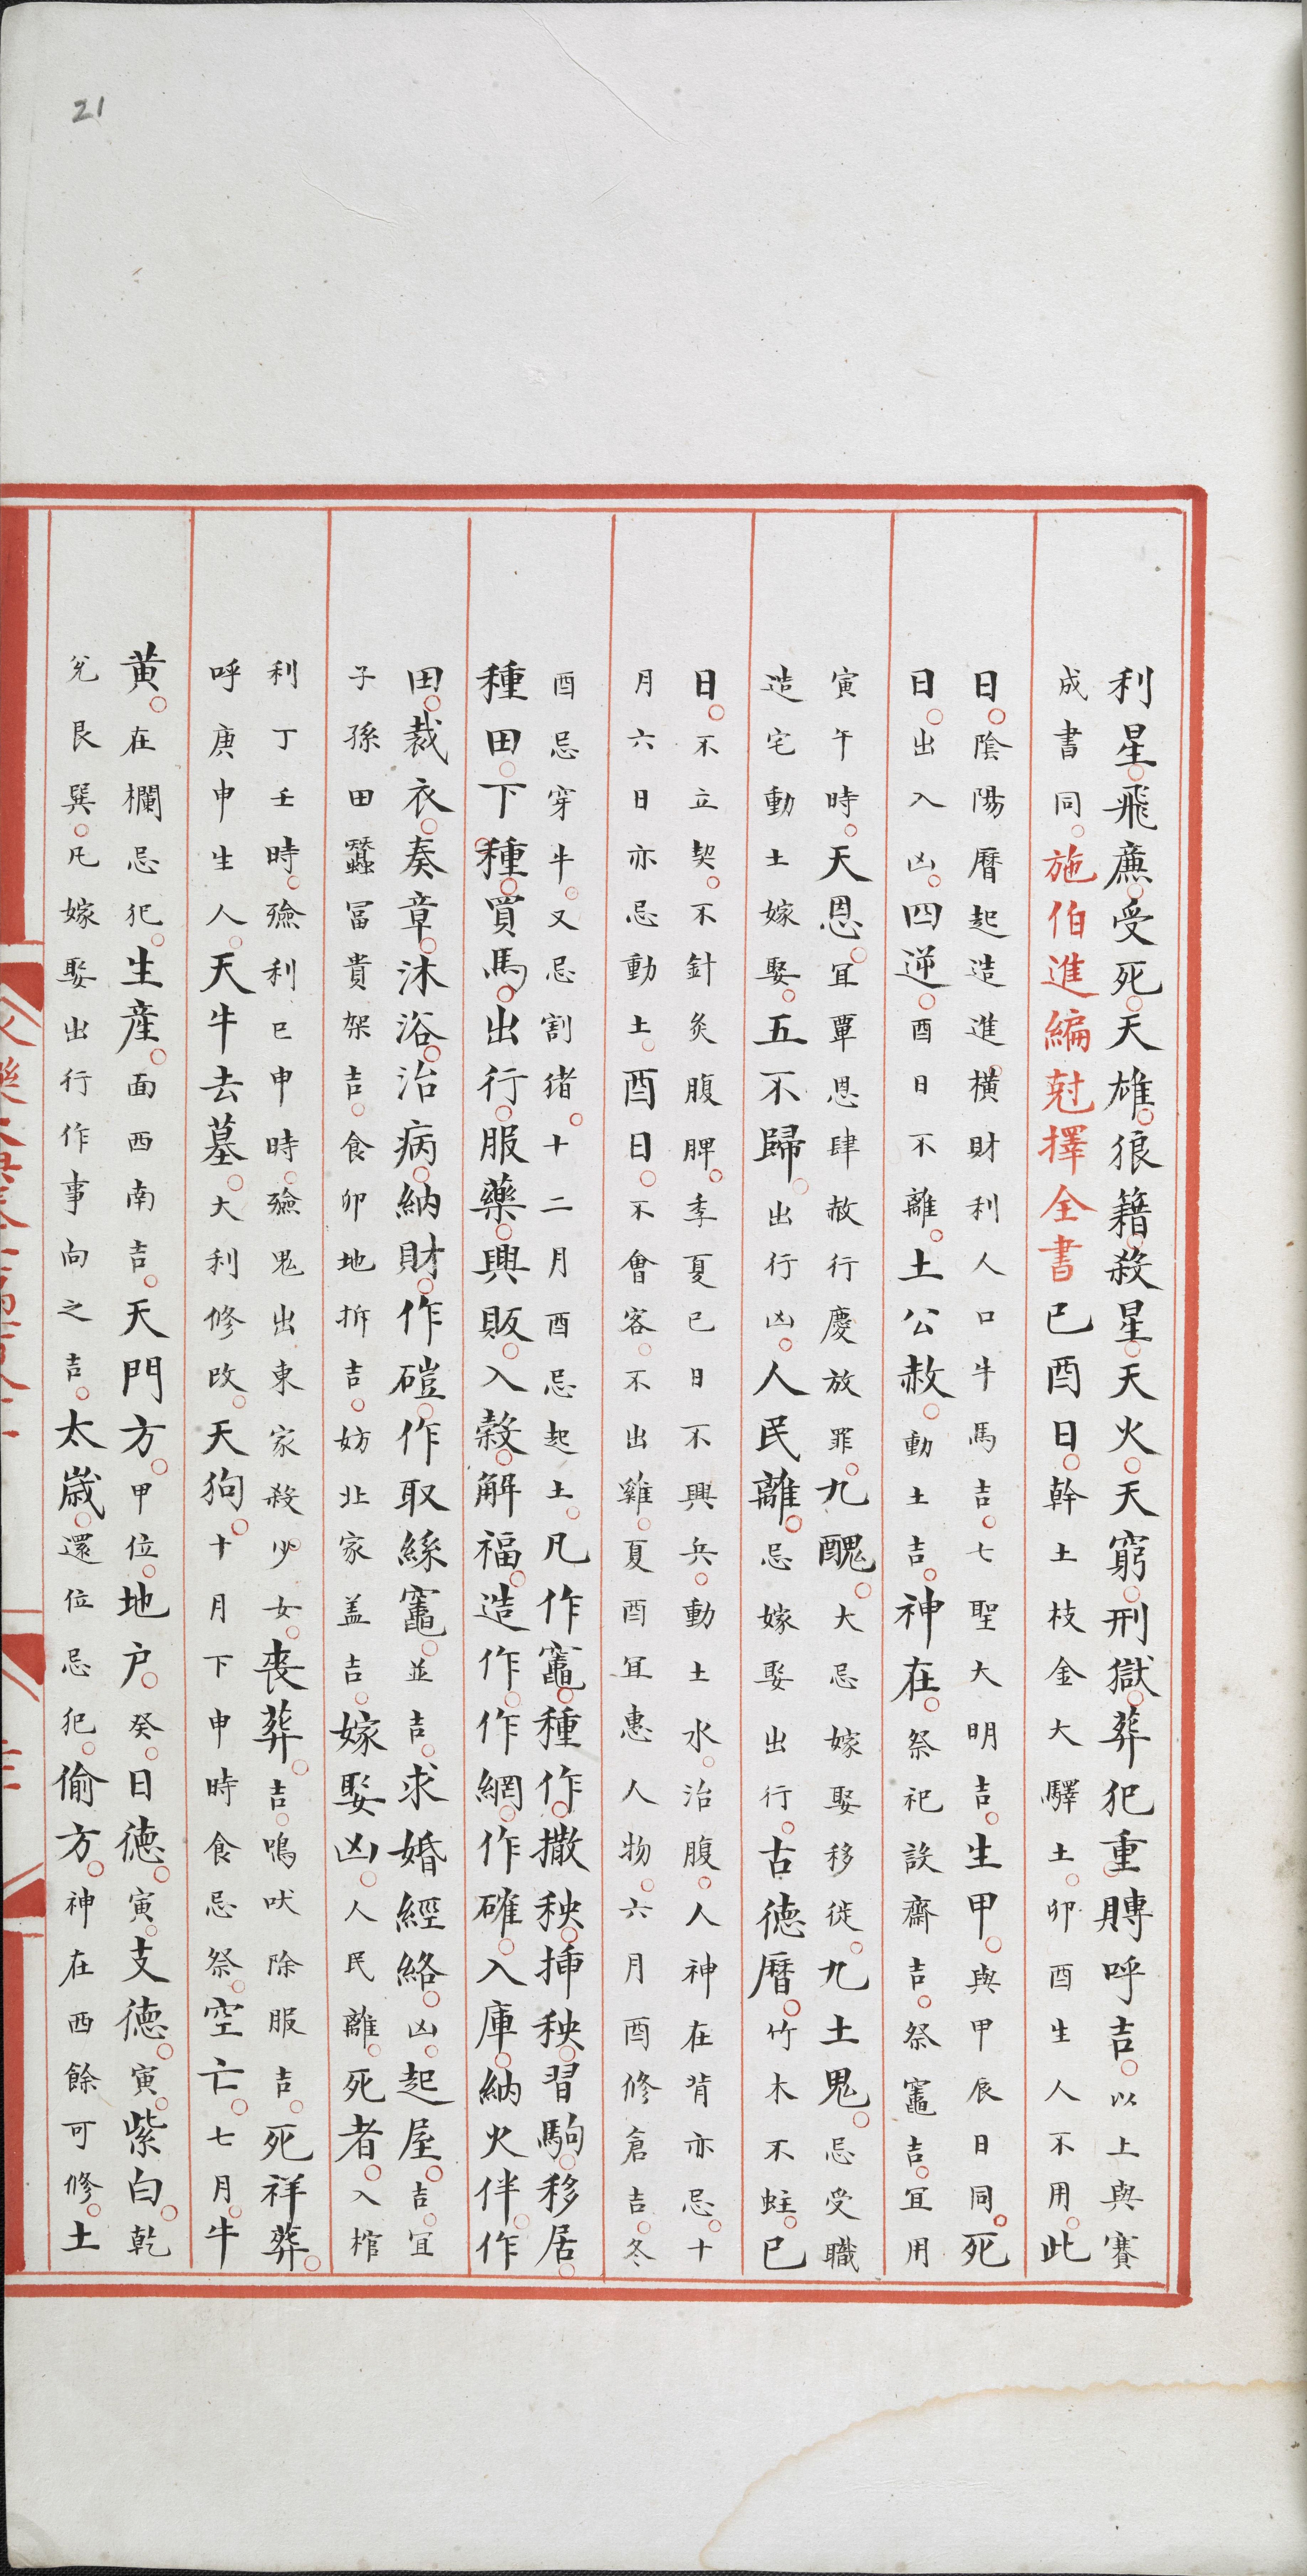 21
利星飛廉受死天雄狼籍殺星天火天窮刑獄葬犯重賻呼吉以上與賽
成書同施伯進編尅擇全書己酉日幹土枝金大驛土卯酉生人不用此
日陰陽曆起造進橫財利人口牛馬吉七聖大明吉生甲與甲辰日同死
日出入凶四逆酉日不離土公赦動土吉神在祭祀設齋吉祭竈吉宜用
寅午時天恩宜覃恩肆赦行慶放罪九醜大忌嫁娶移徙九土鬼忌受職
造宅動土嫁娶五不歸出行凶人民離忌嫁娶出行古德曆竹木不蛀已
日不立契不針灸腹脾季夏已日不興兵動土水治腹人神在背亦忌十
月六日亦忌動土酉日不會客不出雞夏酉宜惠人物六月酉修倉吉冬
酉忌穿牛又忌割猪十二月酉忌起土凡作竈種作撒秧揷秧習駒移居
種田下種買馬出行服藥興販入穀解福造作作網作碓入庫納火伴作
田裁衣奏章沐浴治病納財作磑作取絲竈並吉求婚經絡凶起屋吉宜
子孫田蠶冨貴架吉食卯地拆吉妨北家盖吉嫁娶凶人民離死者入棺
利丁壬時殮利已申時殮鬼出東家殺少女喪葬吉鳴吠除服吉死祥葬
呼庚申生人天牛去墓大利修改天狗十月下申時食忌祭空亡七月牛
黄在欄忌犯生産面西南吉天門方甲位地户癸日德寅支德寅紫白乾
兊艮巽凡嫁娶出行作事向之吉太歲還位忌犯偷方神在西餘可修土